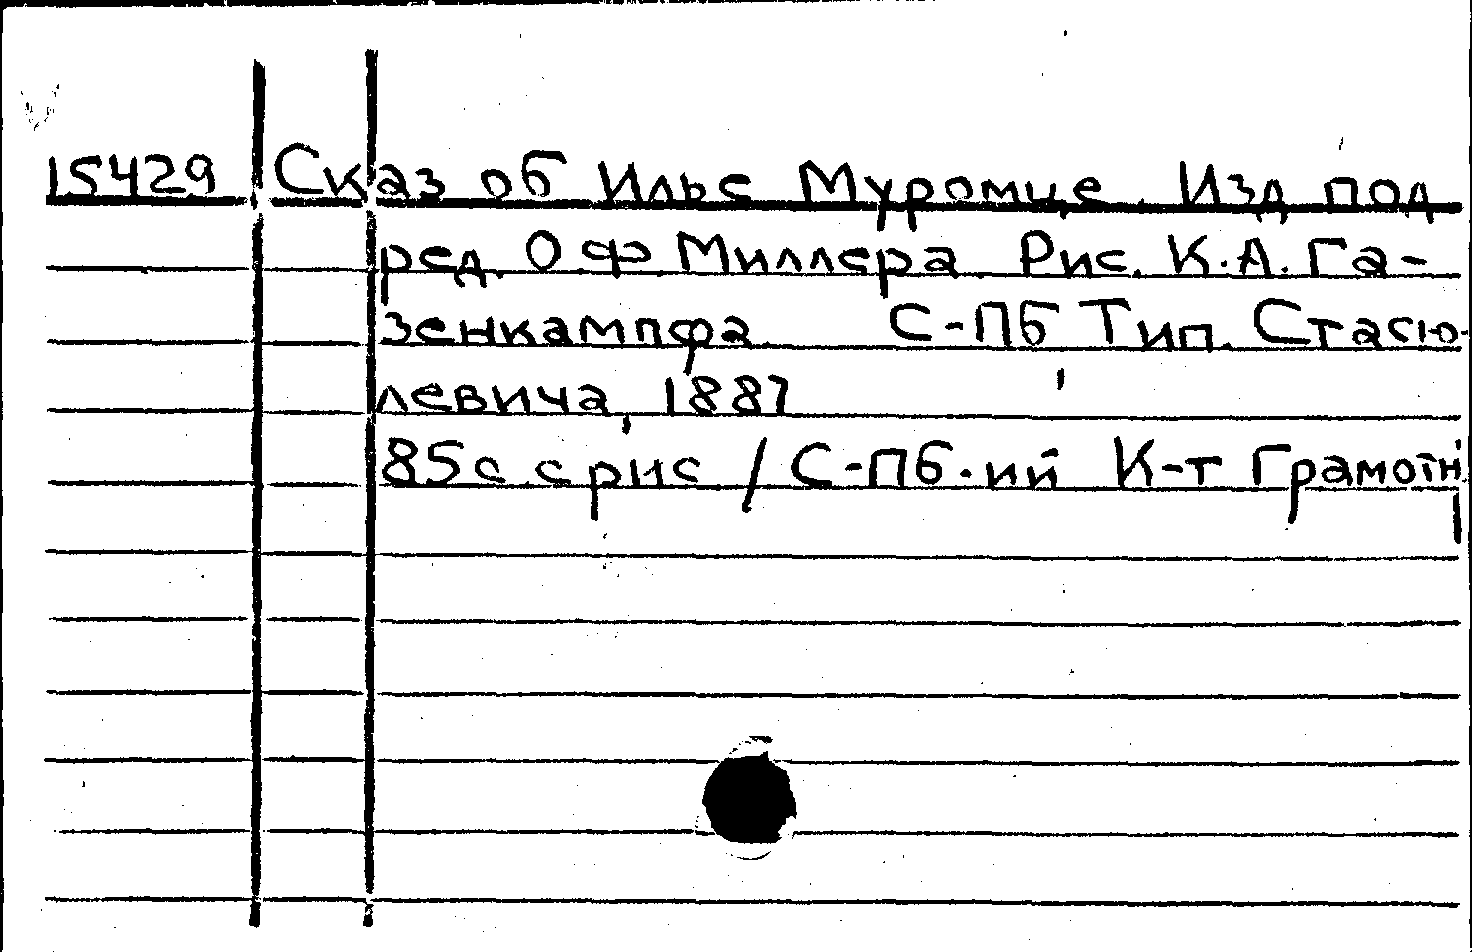 15429 Сказ об Илье Муромце. Изд под
ред. О.Ф. Миллера. Рис. К.А. Га-
зенкампфа. С-Пб Тип. Стасю-
левича, 1887
85с. с рис / С-Пб-ий К-т Грамотн.